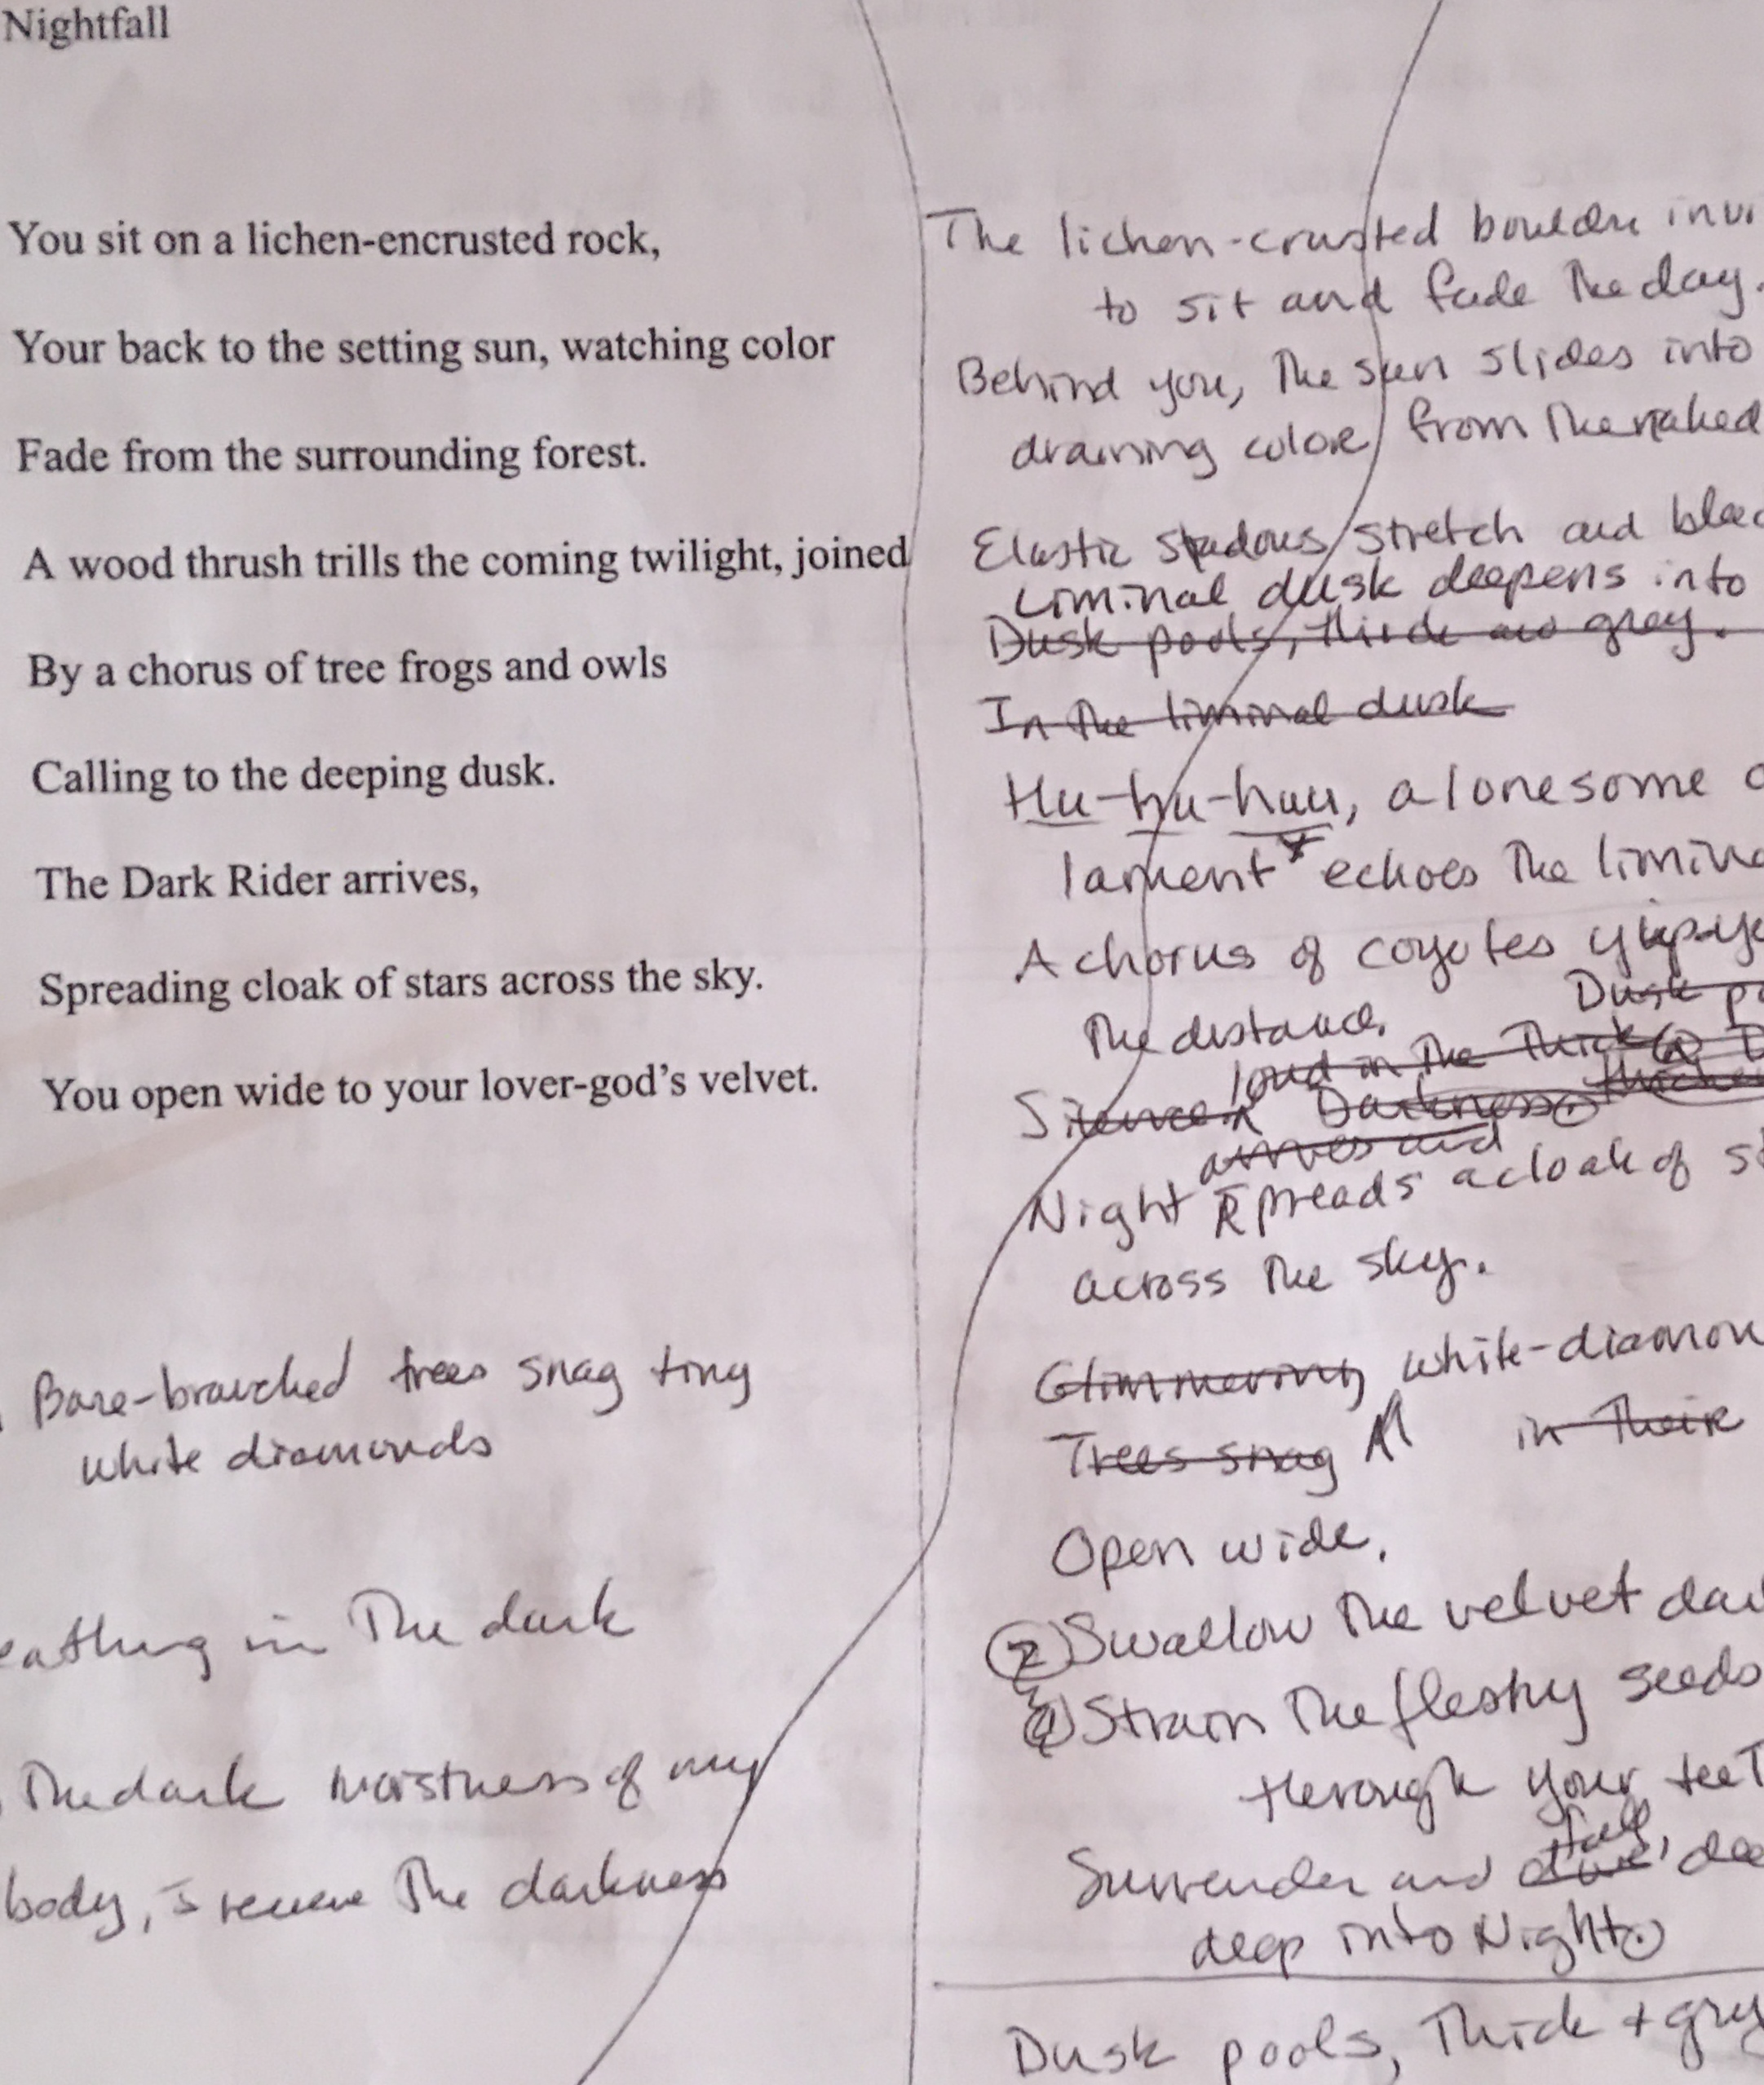 Nightfall
You sit on a lichen-encrusted rock,
Your back to the setting sun, watching color
Fade from the surrounding forest.
A wood thrush trills the coming twilight, joined
By a chorus of tree frogs and owls
Calling to the deeping dusk.
The Dark Rider arrives,
Spreading cloak of stars across the sky.
You open wide to your lover-god's velvet.
Bare-branched trees snag tiny
white diamonds
eathing in the dark
The dark moistness of my
body, is the darkness
The lichen-crusted boulder invi
to sit and fade the day.
Behind you, the sun slides into
draining color from the naked
Elastic shadows stretch and blac
Liminal dusk deepens into
Dusk pools, thick and gray.
In the liminal dusk
Hu-hu-huu, a lonesome o
lament echoes the limina
A chorus of coyotes
the distance.
Dusk po
loud in the thick
Silence. Darkness.
arrives and
Night spreads a cloak of st
across the sky.
Glimmering white-diamon
Trees snag in their
Open wide.
2 Swallow the velvet dar
Strain the fleshy seeds
through your teet
fall,
Surrender and dee
deep into Night.
Dusk pools, Thick + gray